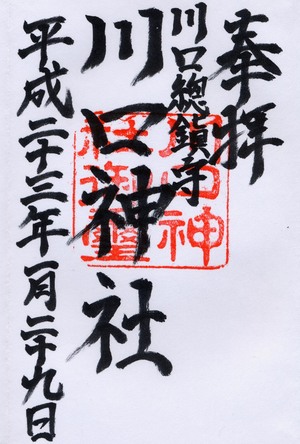 奉拝
川口總鎮守
川口神社
平成二十三年一月二十九日
川口神
社御璽